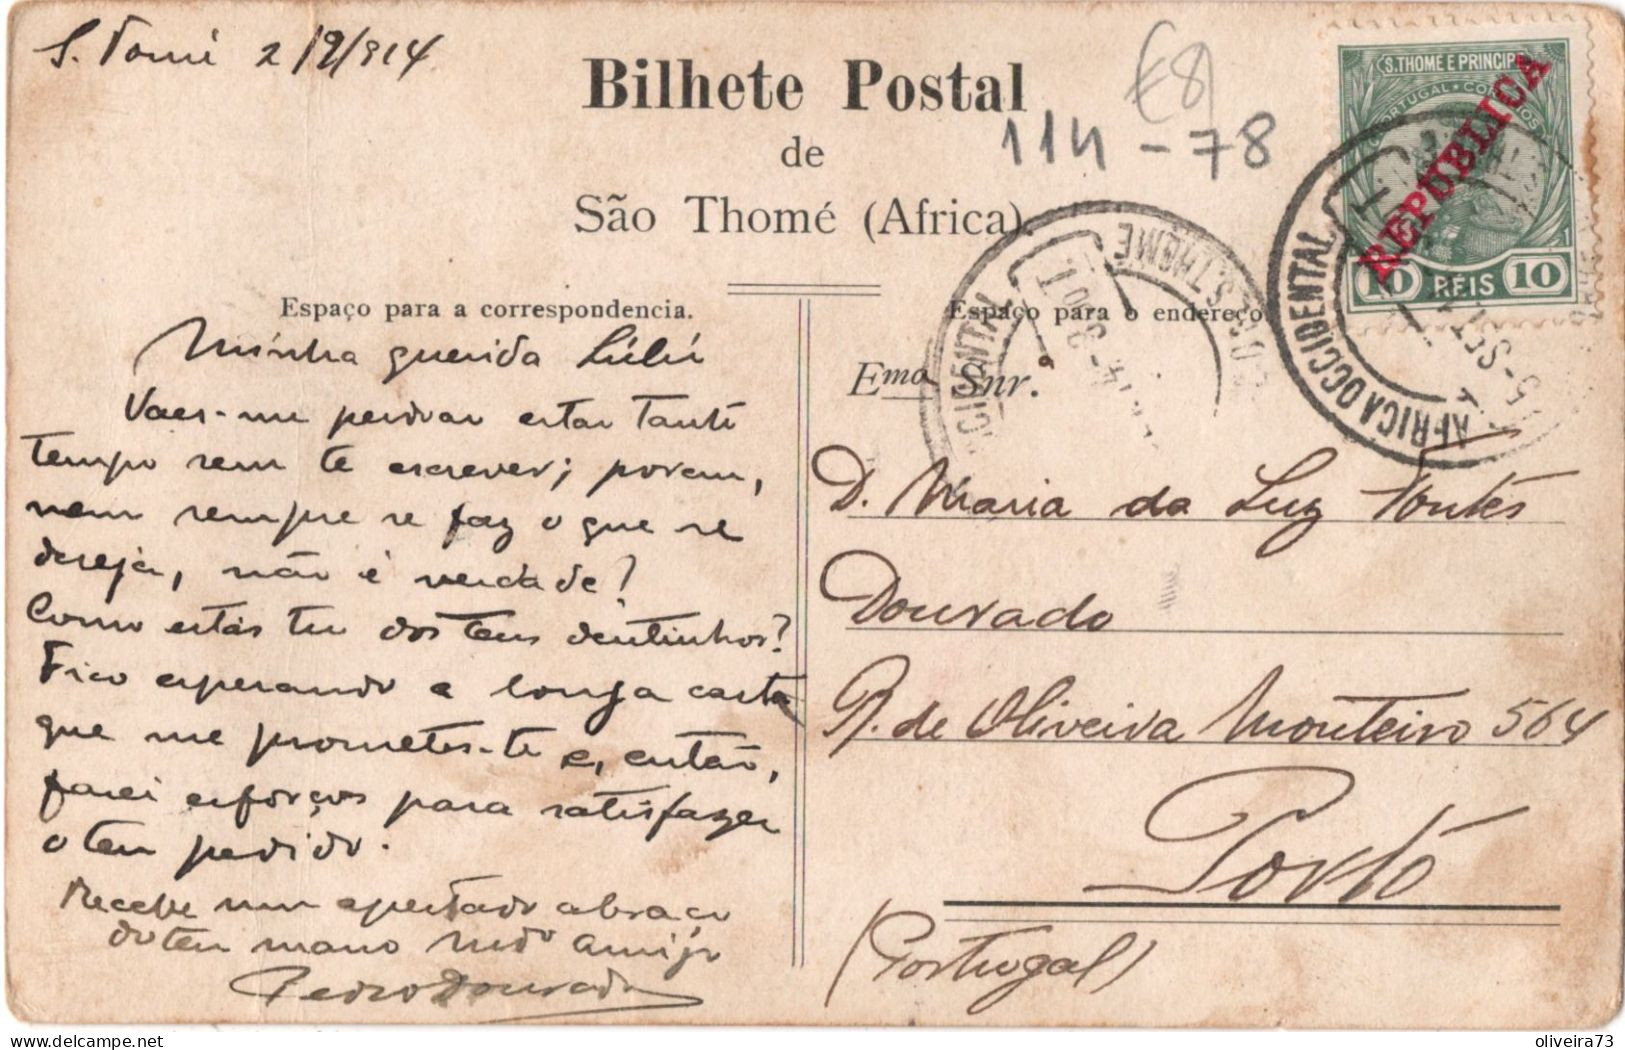 S. Tomé 2/9/914
Bilhete Postal
de
São Thomé (Africa).
€8
114-78
S. THOMÉ E PRINCIPE
PORTUGAL CORREIOS
REPUBLICA
10 RÉIS 10
AFRICA OCCIDENTAL
5-SET
CORR. S. THOMÉ
CIDENTAL
Espaço para a correspondencia.
Espaço para o endereço
Minha querida Lúlú
Vaes-me perdoar estar tanto
tempo sem te escrever; porem,
nem sempre se faz o que se
deseja, não é verdade?
Como estás tu dos teus dentinhos?
Fico esperando a longa carta
que me prometes-te e, então,
farei esforços para satisfazer
o teu pedido.
Recebe um apertado abraço
do teu mano mto amigo
Pedro Dourado
Emª Snr.ª
D. Maria da Luz Fontes
Dourado
R. de Oliveira Monteiro 564
Porto
(Portugal)
delcampe.net
oliveira73